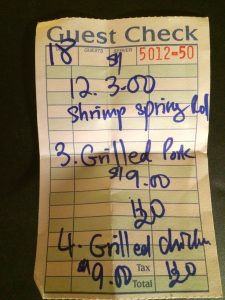 Guest Check
18 GUESTS $1 SERVER 5012=50
12. 3.00
Shrimp spring Rol
3. Grilled Pork
$9.00
1/20
4. Grilled chicken
$9.00 Tax
Total 1/20